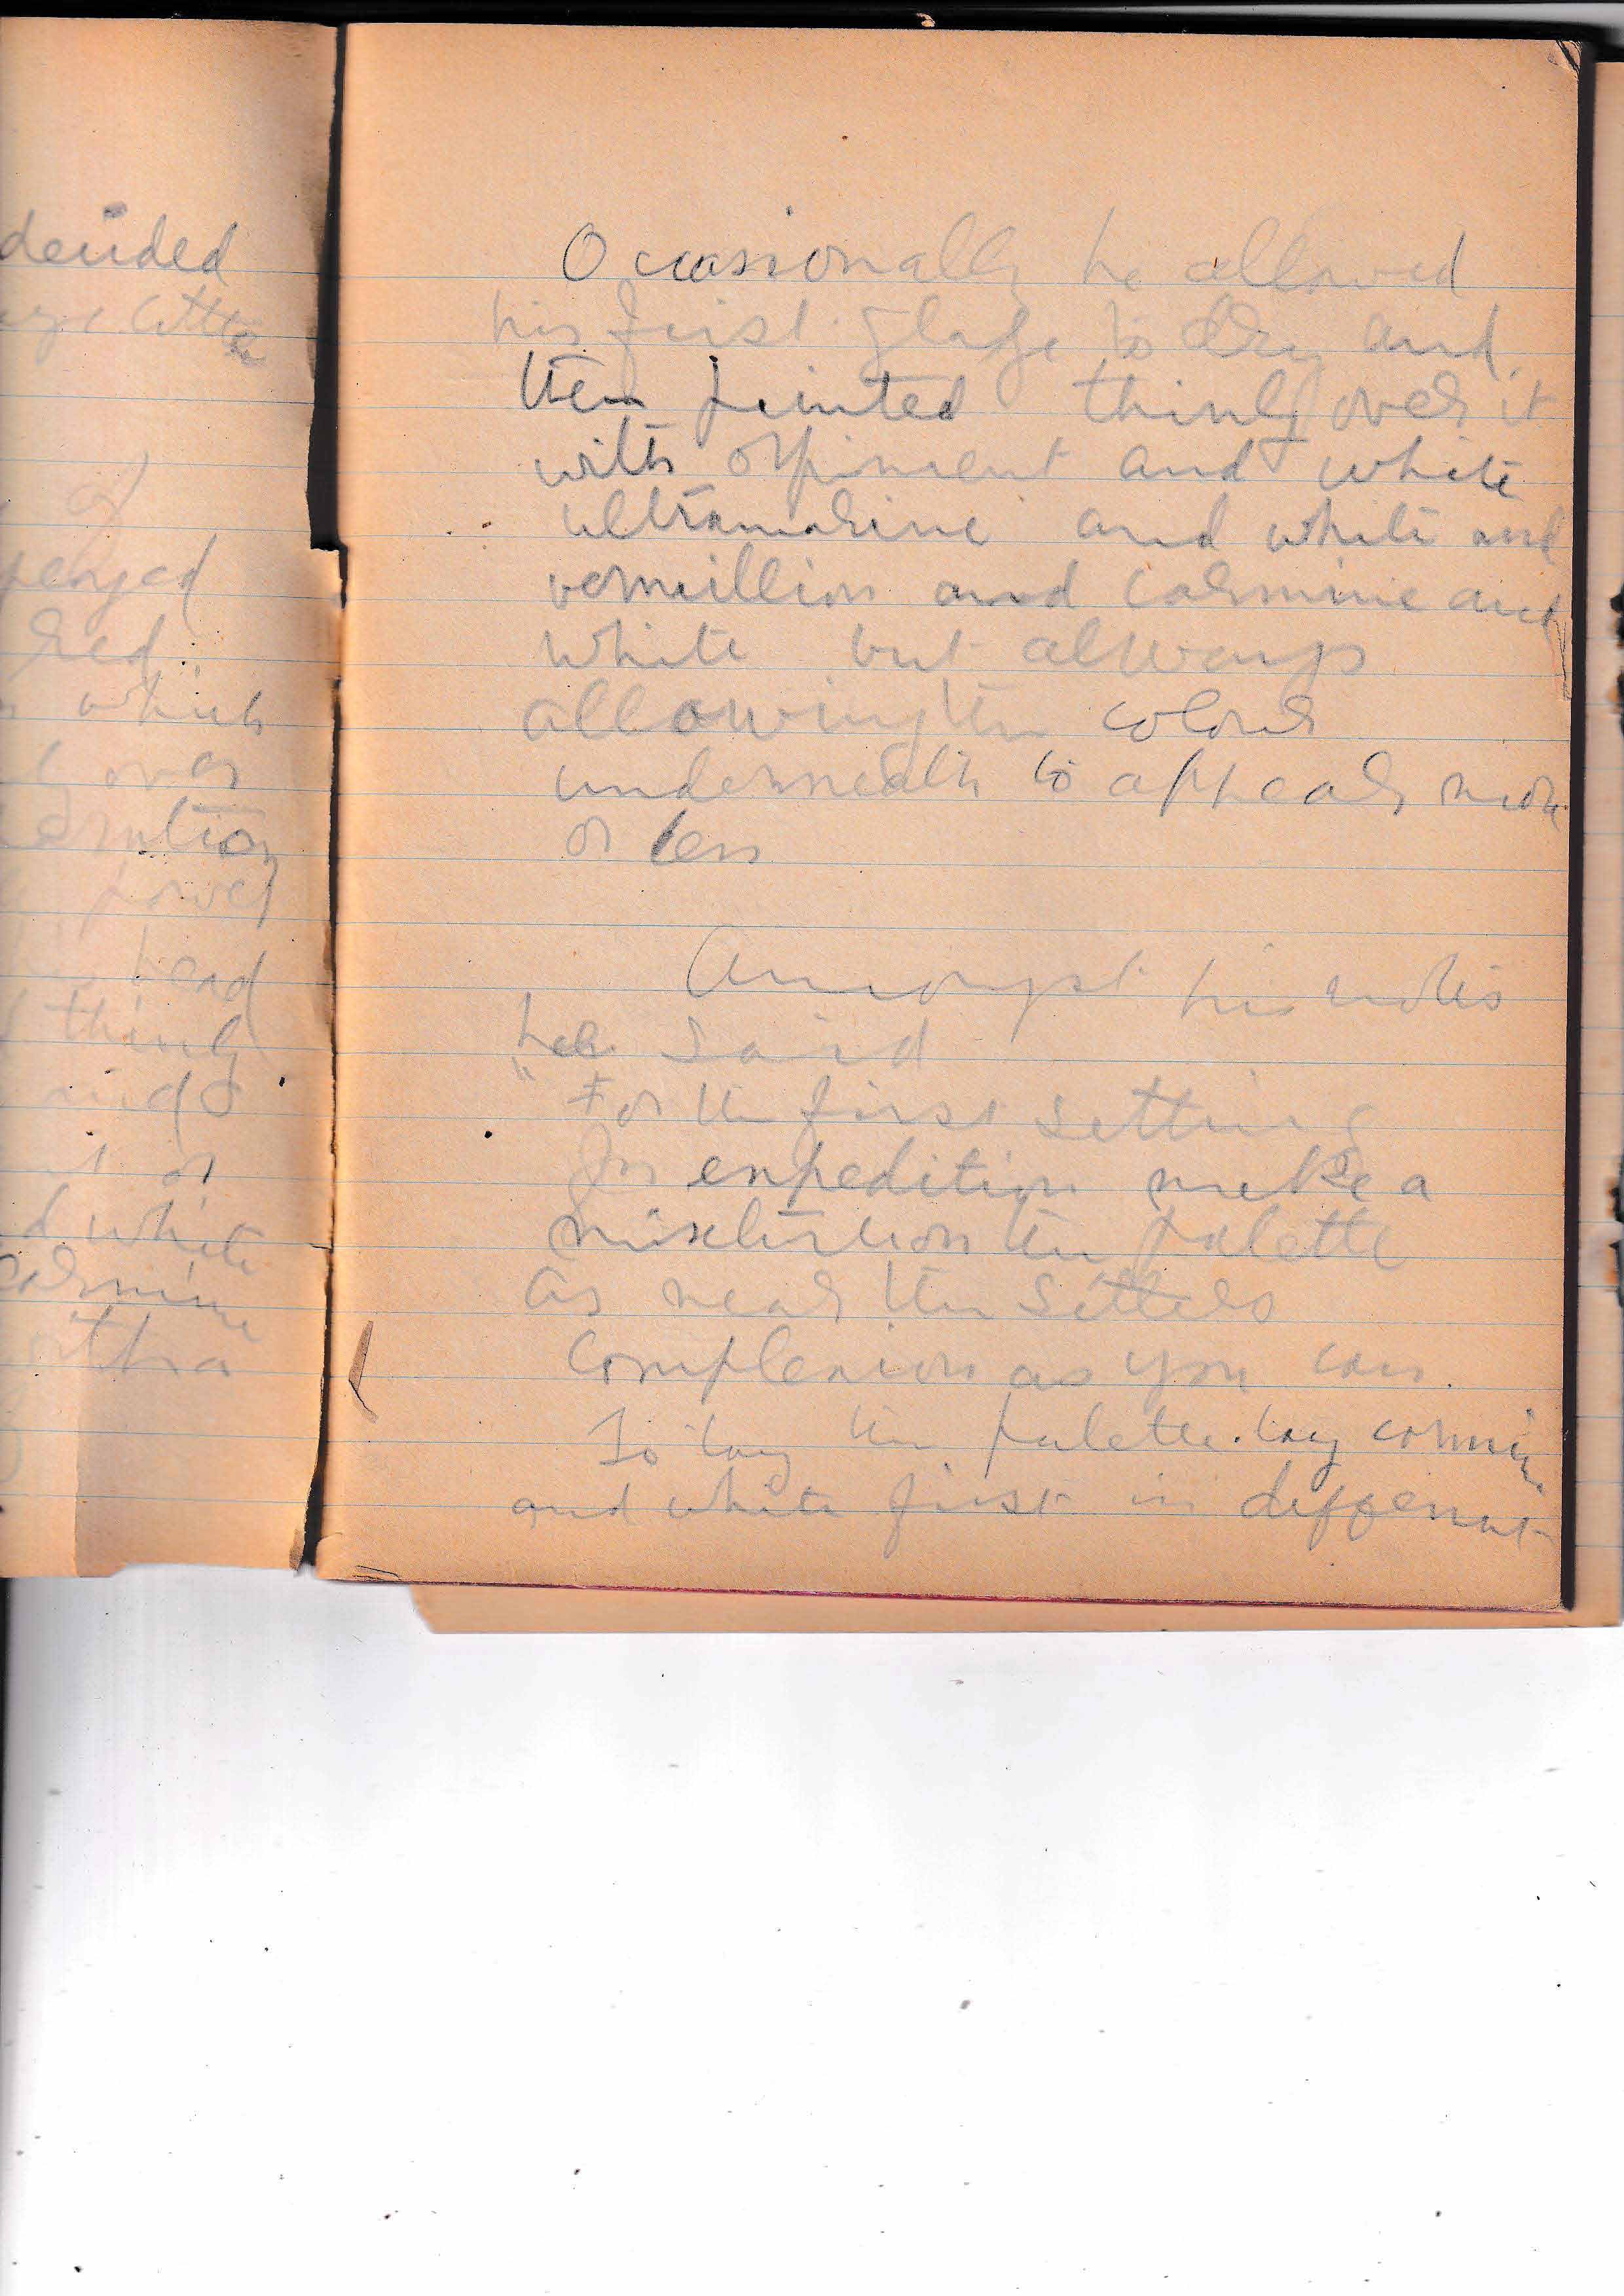 decided
of
red
which
over
power
head
thinly
or
d white
carmine
Occassionally he allowed
his first glaze to dry and
then painted thinly over it
with orpiment and white
ultramarine and white and
vermillion and carmine and
white but always
allowing the colour
underneath to appear more
or less
Amongst his notes
he said
"For the first setting
for expedition make a
mixture on the palette
as near the sitters
complexion as you can.
To lay the palette. lay carmine
and white first in different